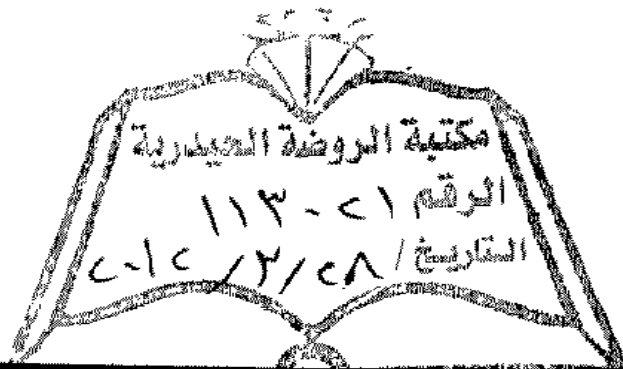 مكتبة الروضة الحيدرية
الرقم ١١٣٠٢١
التاريخ / ٢٨ / ٣ / ٢٠١٢